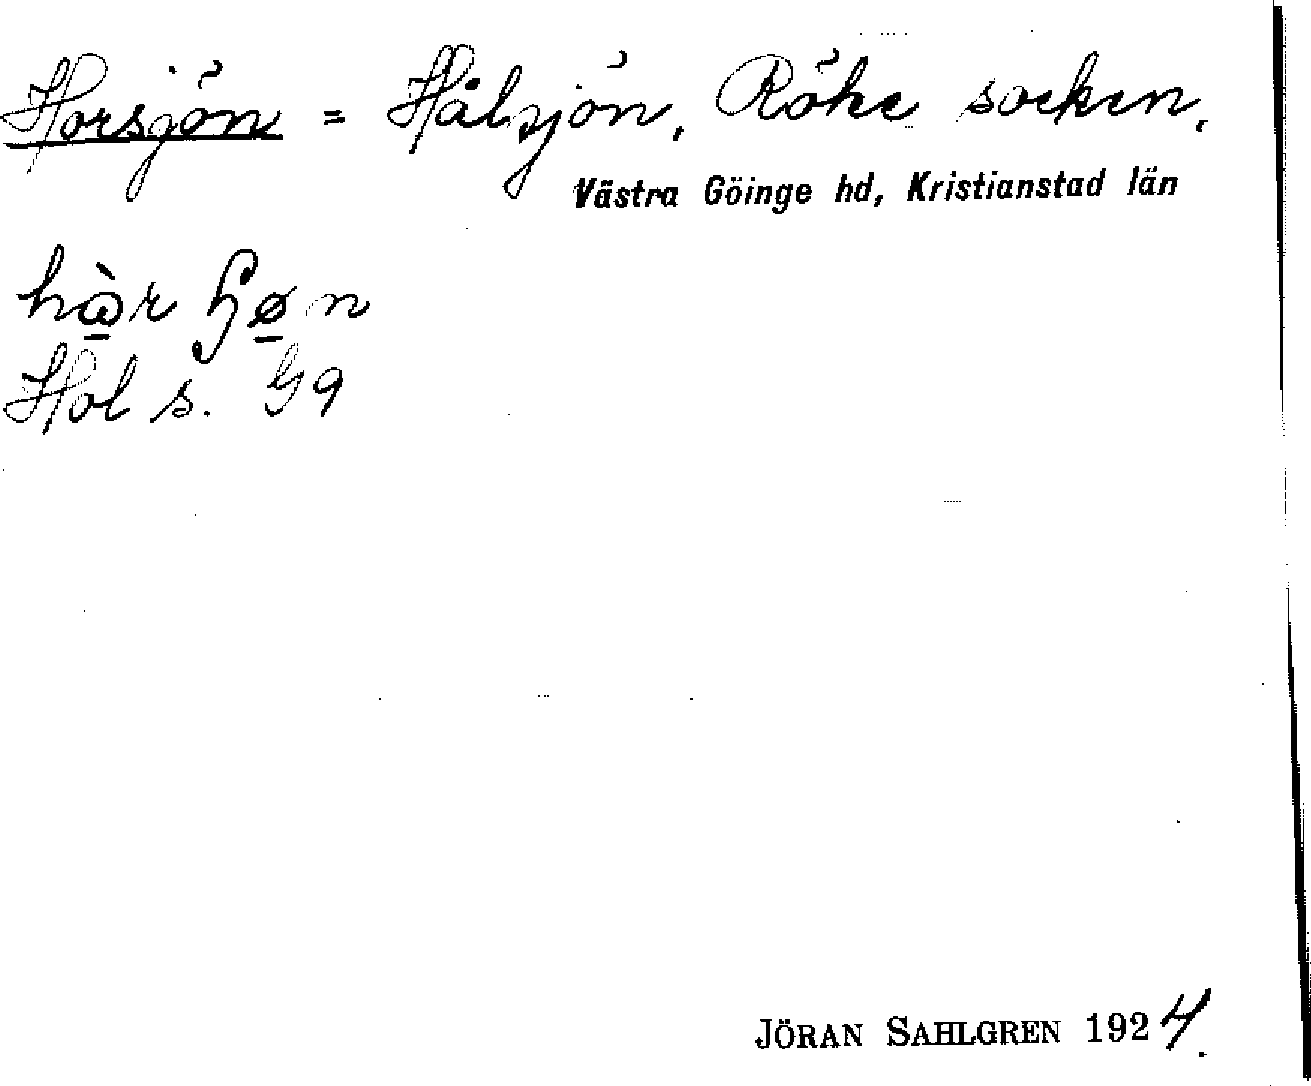 Horsjön = Hålsjön, Röke socken,
Västra Göinge hd, Kristianstad län
Hol s. G9
JÖRAN SAHLGREN 1924.